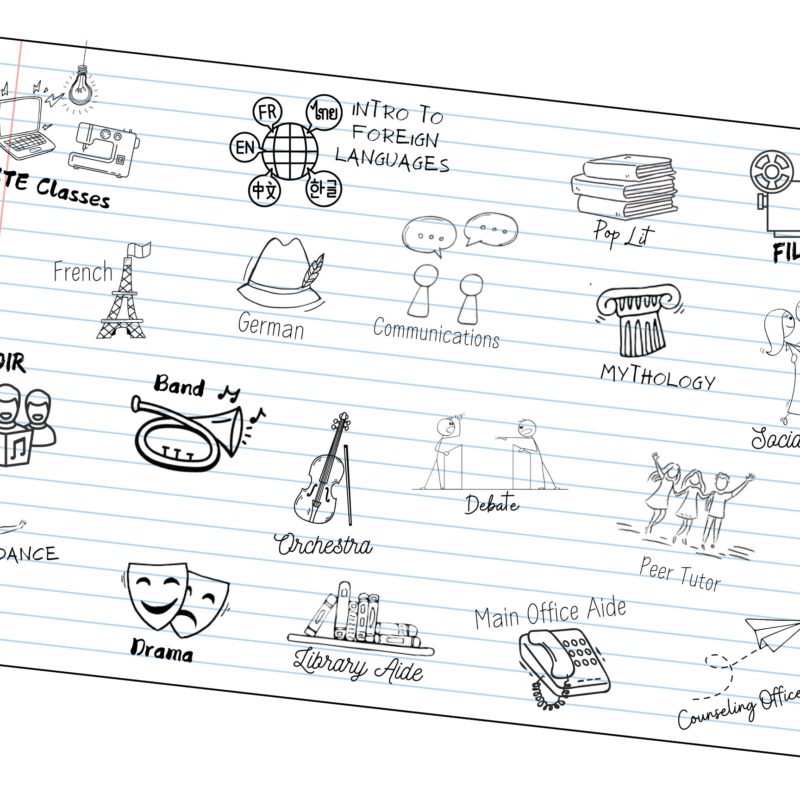 FR
ไทย
EN
中文
한글
INTRO TO
FOREIGN
LANGUAGES
TE Classes
Pop Lit
FIL
French
German
Communications
MYTHOLOGY
Socia
OIR
Band
Orchestra
Debate
Peer Tutor
DANCE
Drama
Library Aide
Main Office Aide
Counseling Office